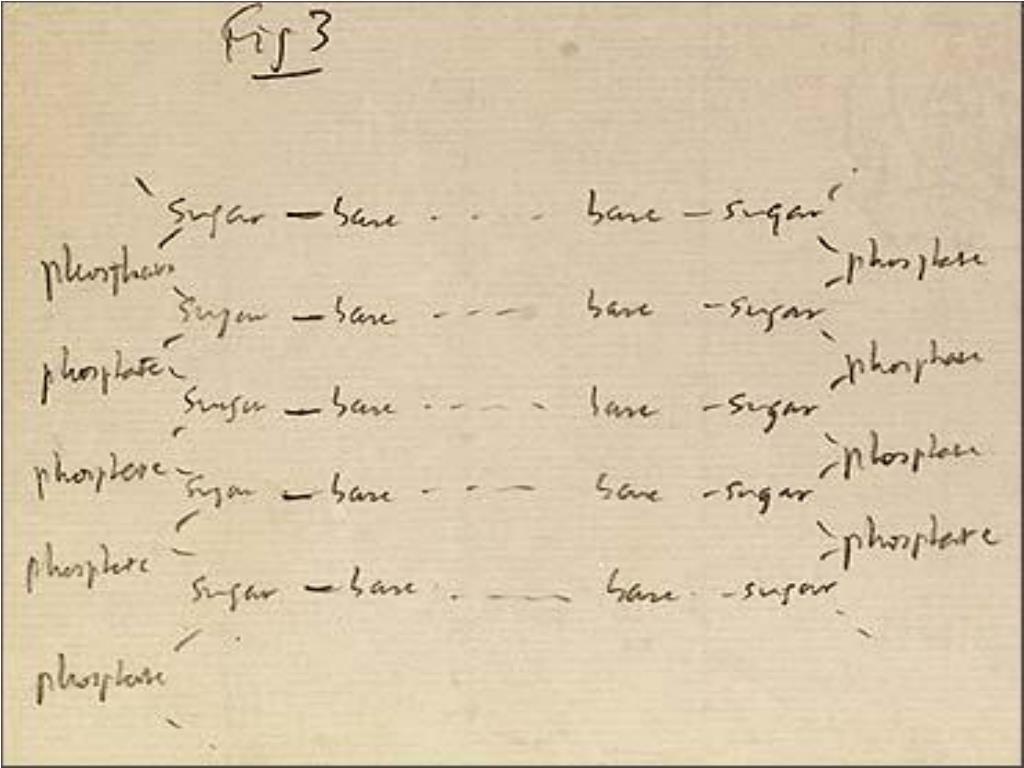 Fig 3
sugar — base - - - - base — sugar
phosphate phosphate
sugar — base - - - - base - sugar
phosphate phosphate
sugar — base - - - - base - sugar
phosphate phosphate
sugar — base - - - - base - sugar
phosphate phosphate
sugar — base - - - - base - sugar
phosphate